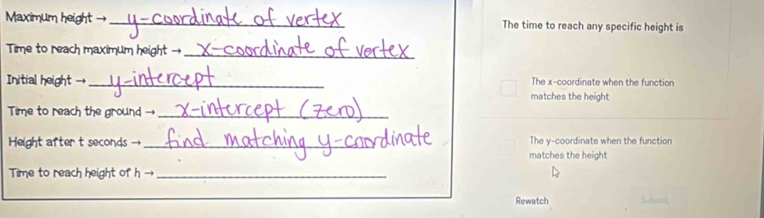 Maximum height → y-coordinate of vertex
Time to reach maximum height → x-coordinate of vertex
Initial height → y-intercept
Time to reach the ground → x-intercept (zero)
Height after t seconds → find matching y-coordinate
Time to reach height of h →
The time to reach any specific height is
The x-coordinate when the function
matches the height
The y-coordinate when the function
matches the height
Rewatch
Submit